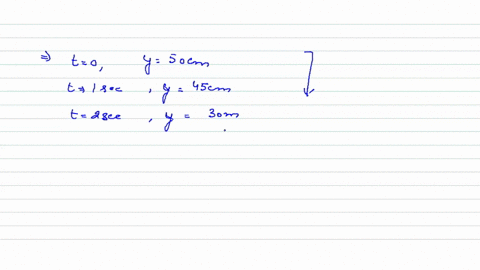 ⇒ t=0, y = 50cm
t=1 sec , y = 45cm
t=2sec , y = 30m